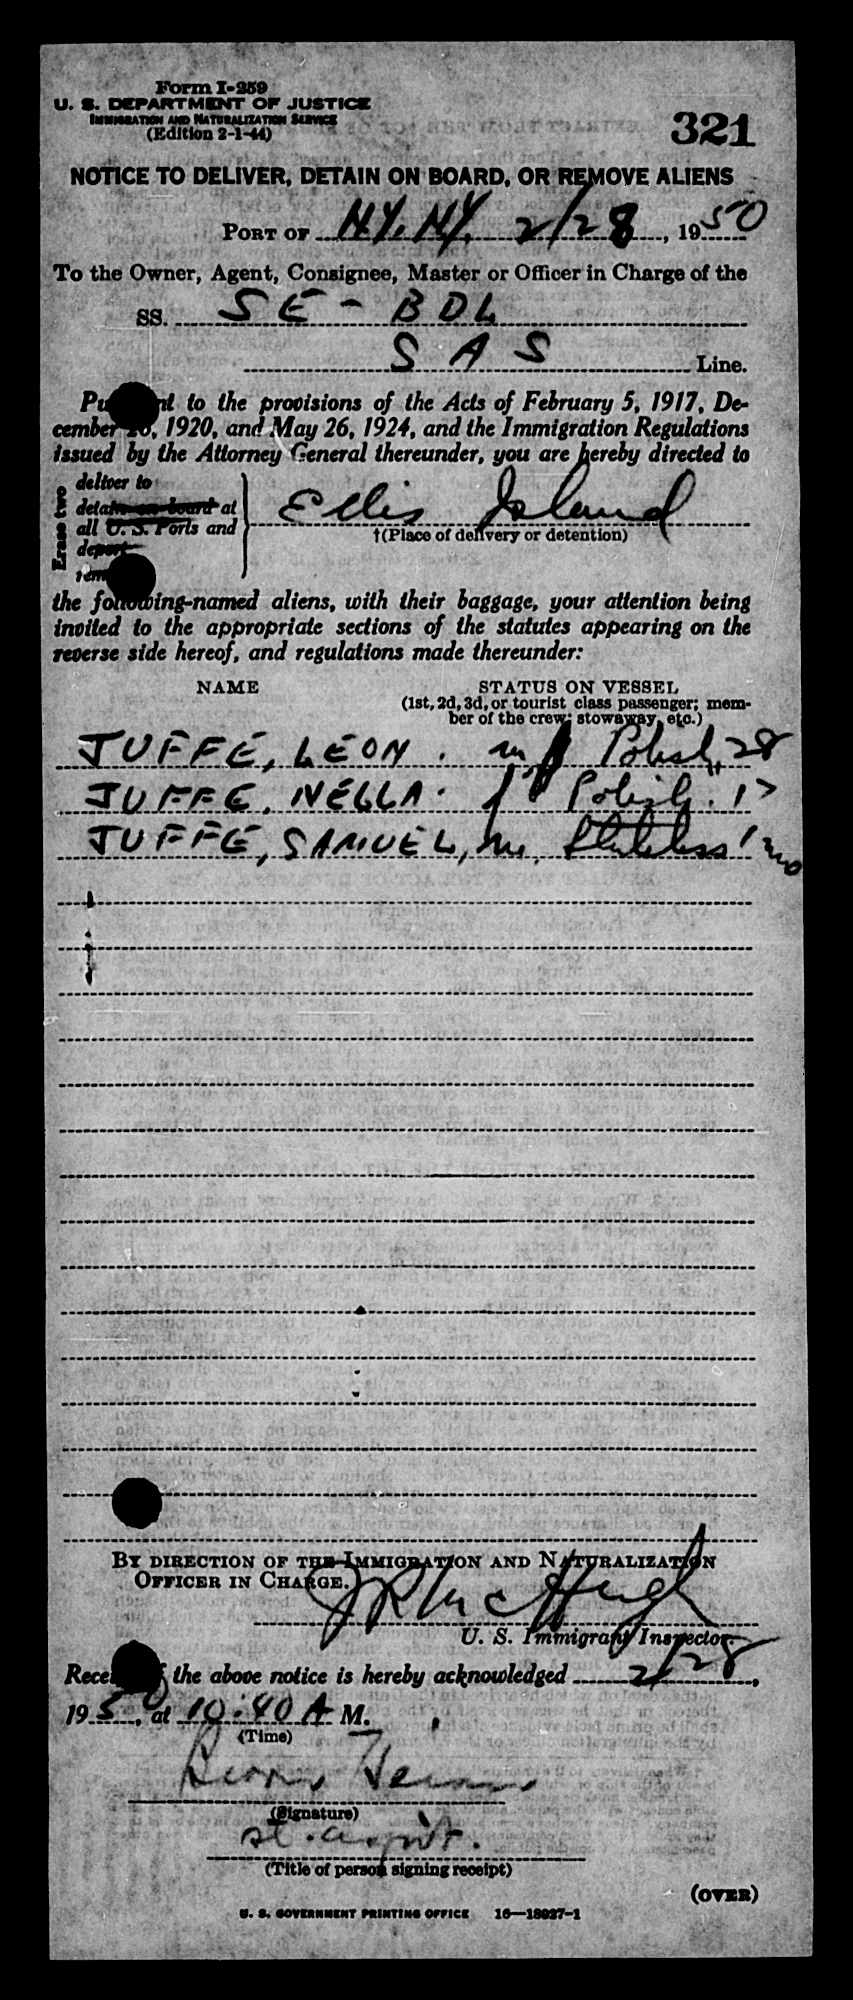 Form I-259
U. S. DEPARTMENT OF JUSTICE
IMMIGRATION AND NATURALIZATION SERVICE
(Edition 2-1-44)
321
NOTICE TO DELIVER, DETAIN ON BOARD, OR REMOVE ALIENS
PORT OF N.Y. N.Y. 2/28, 1950
To the Owner, Agent, Consignee, Master or Officer in Charge of the
SS. SE - BDL
SAS Line.
Pu nt to the provisions of the Acts of February 5, 1917, De-
cember 26, 1920, and May 26, 1924, and the Immigration Regulations
issued by the Attorney General thereunder, you are hereby directed to
Erase two
deliver to
detain on board at
all U. S. Ports and
deport
rem
Ellis Island
†(Place of delivery or detention)
the following-named aliens, with their baggage, your attention being
invited to the appropriate sections of the statutes appearing on the
reverse side hereof, and regulations made thereunder:
NAME
STATUS ON VESSEL
(1st, 2d, 3d, or tourist class passenger; mem-
ber of the crew; stowaway, etc.)
JUFFE, LEON. m Polish, 28
JUFFE, NELLA. f Polish. 17
JUFFE, SAMUEL, m. Stateless 1 mo
BY DIRECTION OF THE IMMIGRATION AND NATURALIZATION
OFFICER IN CHARGE.
J R McHugh
U. S. Immigrant Inspector.
Rece the above notice is hereby acknowledged 2/28,
1950, at 10:40 A M.
(Time)
(Signature)
st.
(Title of person signing receipt)
(OVER)
U. S. GOVERNMENT PRINTING OFFICE 16—18027-1